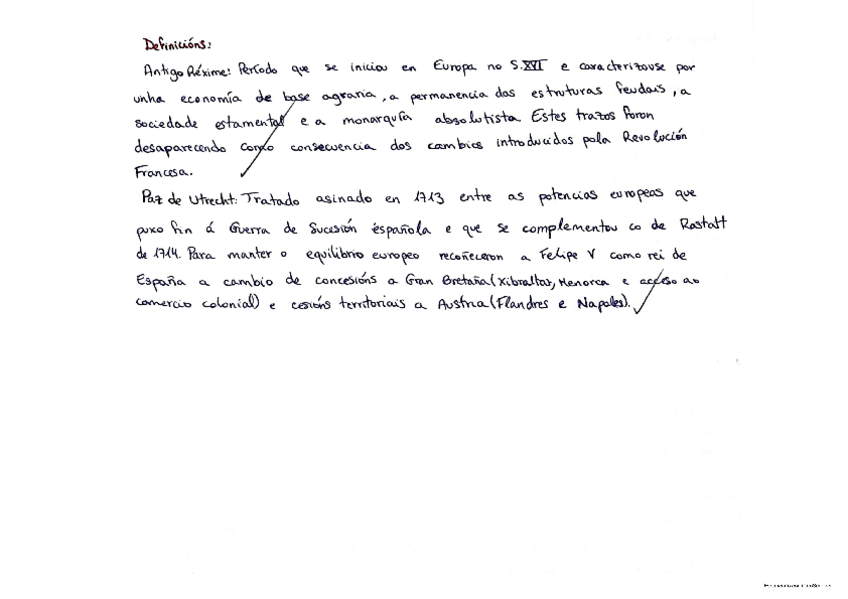 Definicións:
Antigo Réxime: Período que se iniciou en Europa no S.XVI e caracterizouse por
unha economía de base agraria, a permanencia das estruturas feudais, a
sociedade estamental e a monarquía absolutista. Estes trazos foron
desaparecendo como consecuencia dos cambios introducidos pola Revolución
Francesa.
Paz de Utrecht: Tratado asinado en 1713 entre as potencias europeas que
puxo fin á Guerra de Sucesión española e que se complementou co de Rastatt
de 1714. Para manter o equilibrio europeo recoñeceron a Felipe V como rei de
España a cambio de concesións a Gran Bretaña (Xibraltar, Menorca e acceso ao
comercio colonial) e cesións territoriais a Austria (Flandres e Napoles).